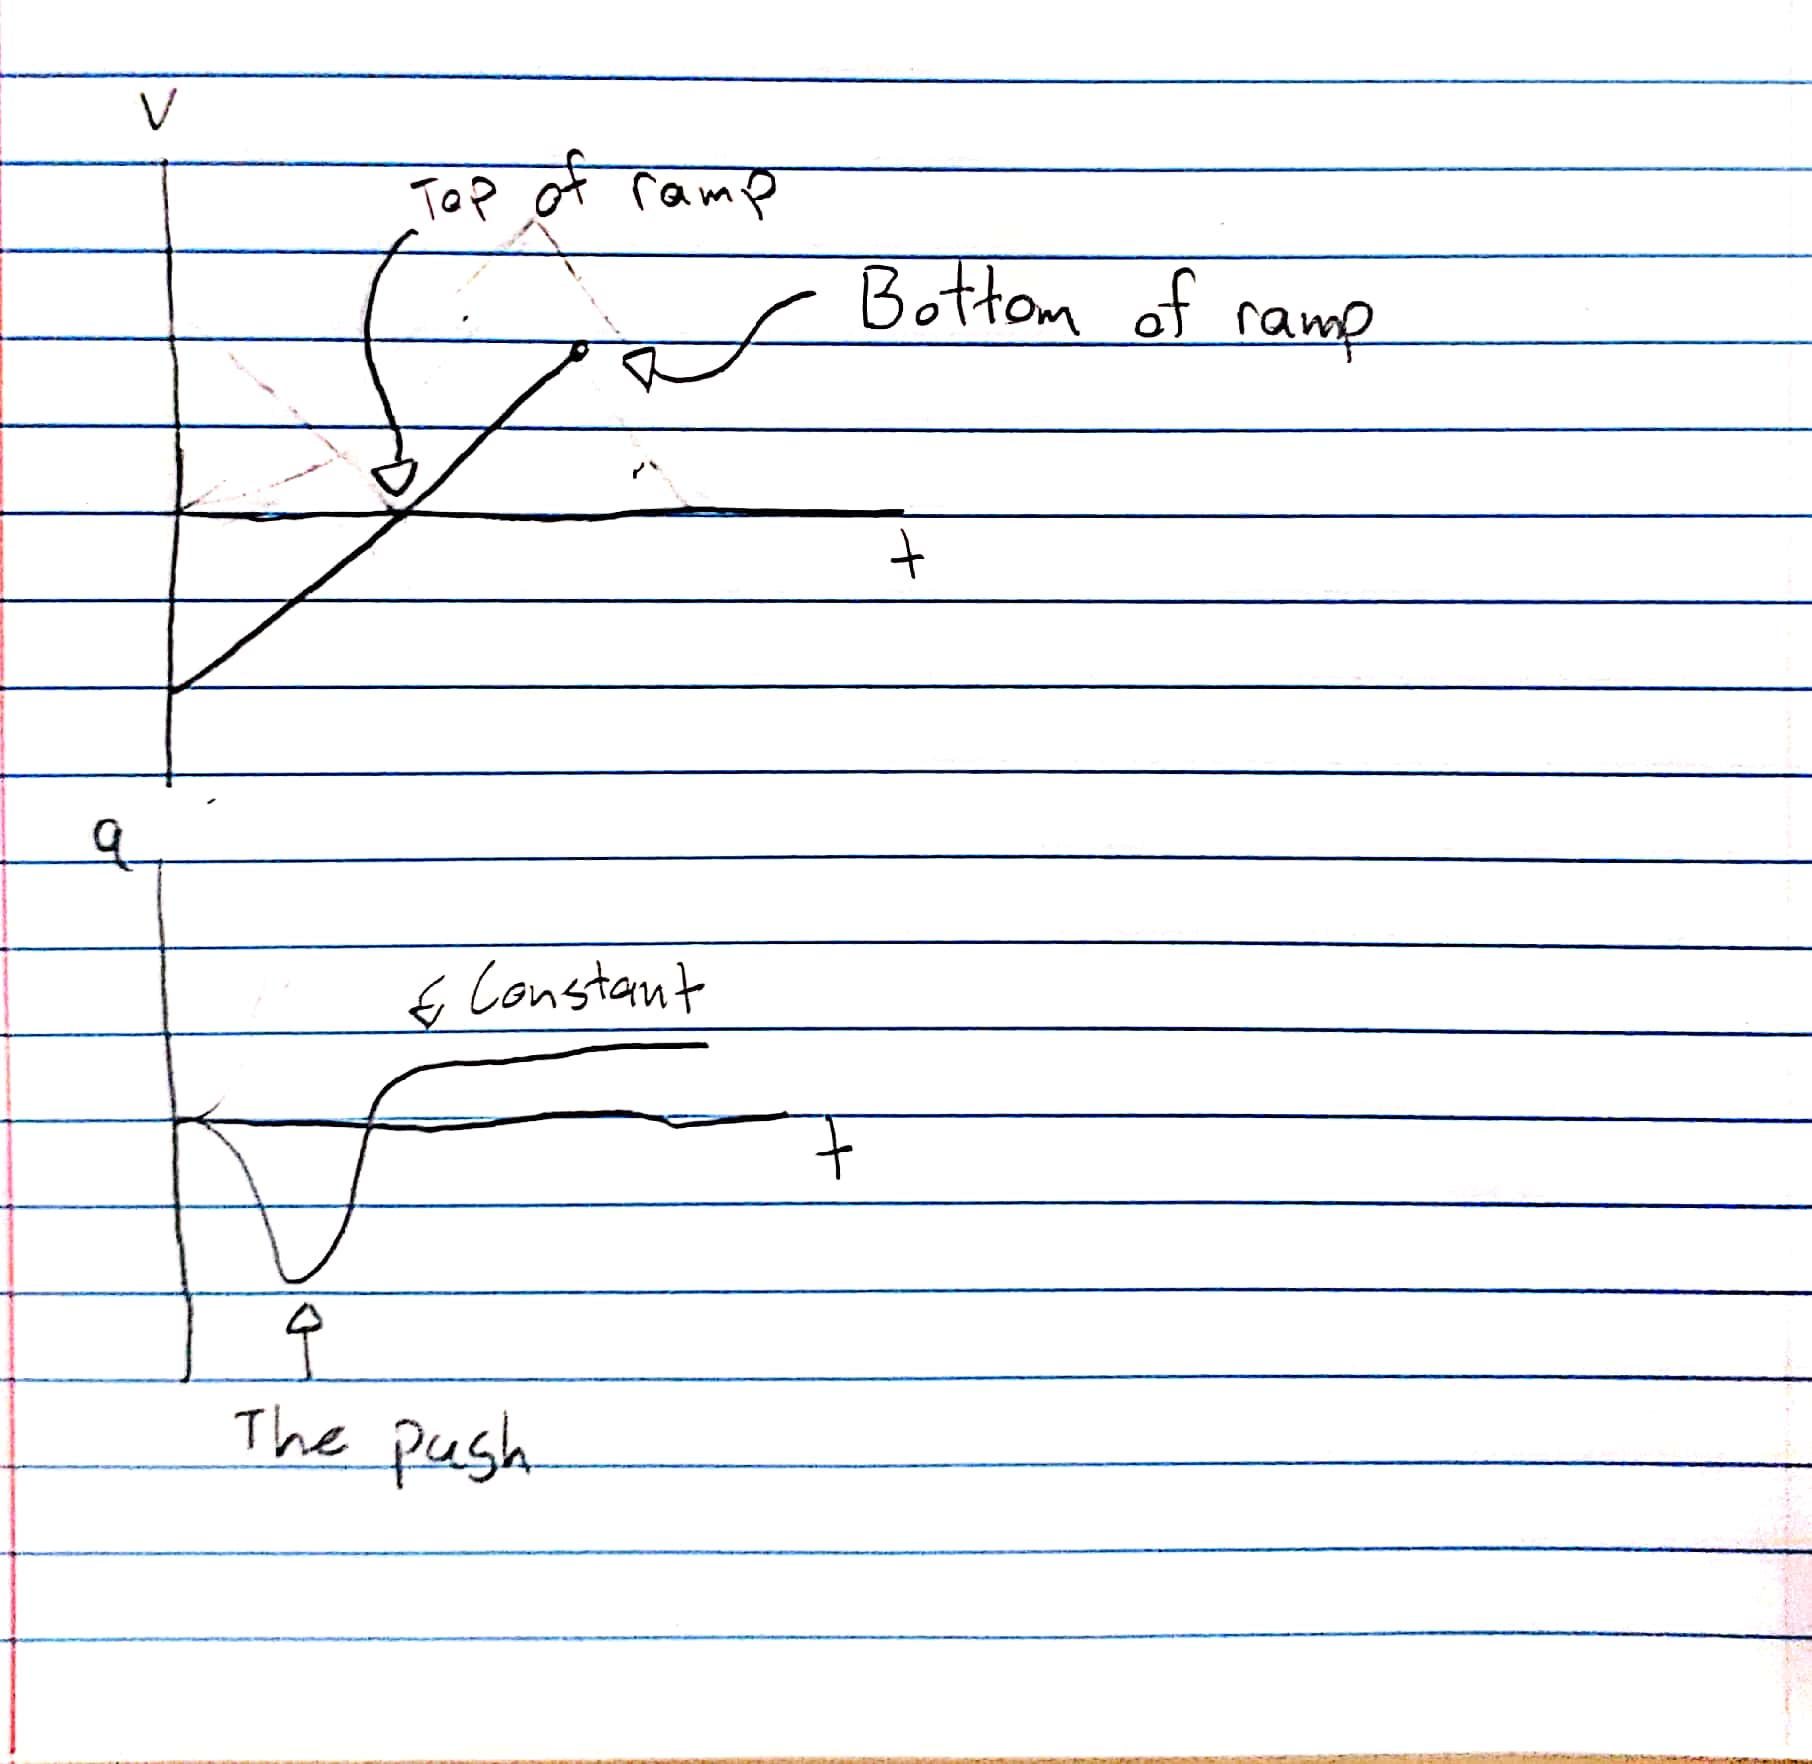 V
Top of ramp
Bottom of ramp
t
a
Constant
t
The push